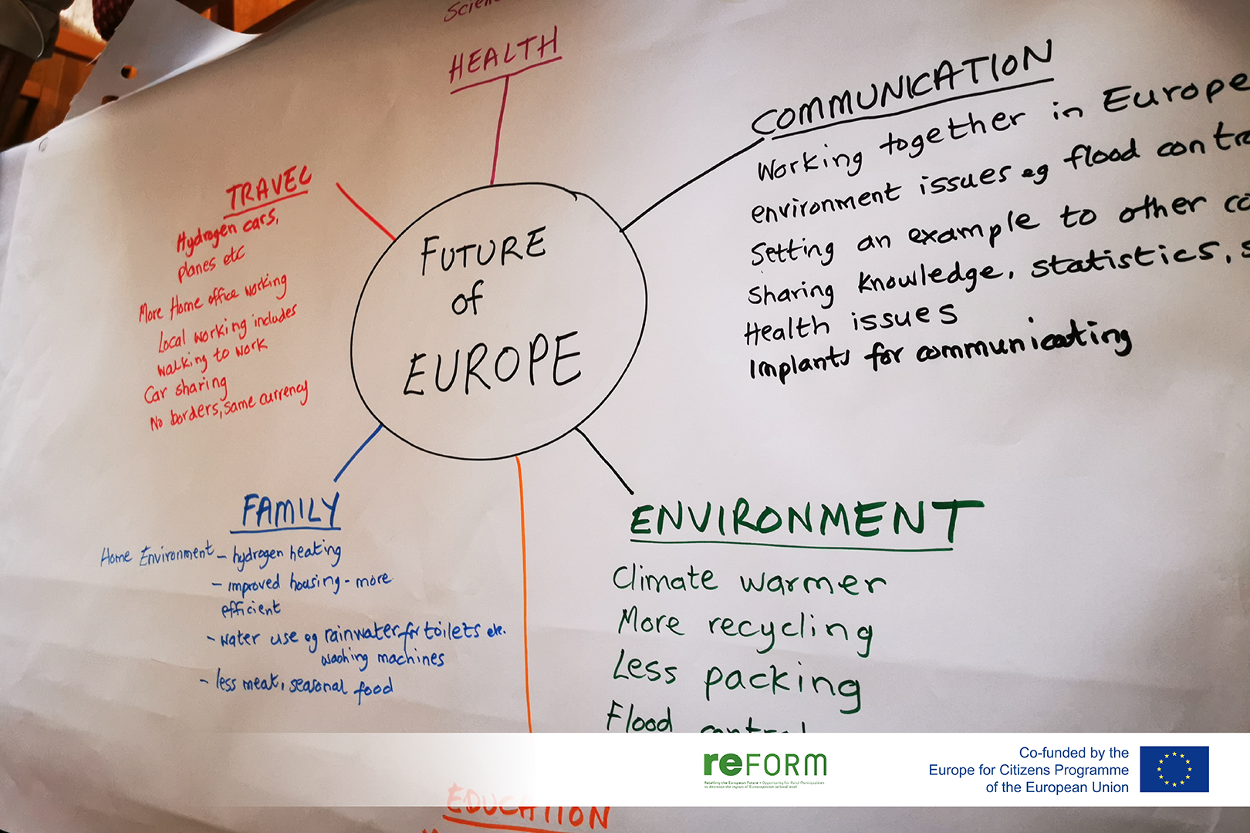 HEALTH
COMMUNICATION
Working together in Europe
environment issues eg flood
Setting an example to other
Sharing knowledge, statistics,
Health issues
Implants for communicating
TRAVEL
Hydrogen cars,
planes etc
More Home office working
Local working includes
walking to work
Car sharing
No borders, same currency
FUTURE
of
EUROPE
FAMILY
Home Environment – hydrogen heating
– improved housing - more
efficient
– water use eg rainwater for toilets etc.
washing machines
– less meat, seasonal food
ENVIRONMENT
Climate warmer
More recycling
Less packing
Flood control
EDUCATION
reFORM
Co-funded by the
Europe for Citizens Programme
of the European Union